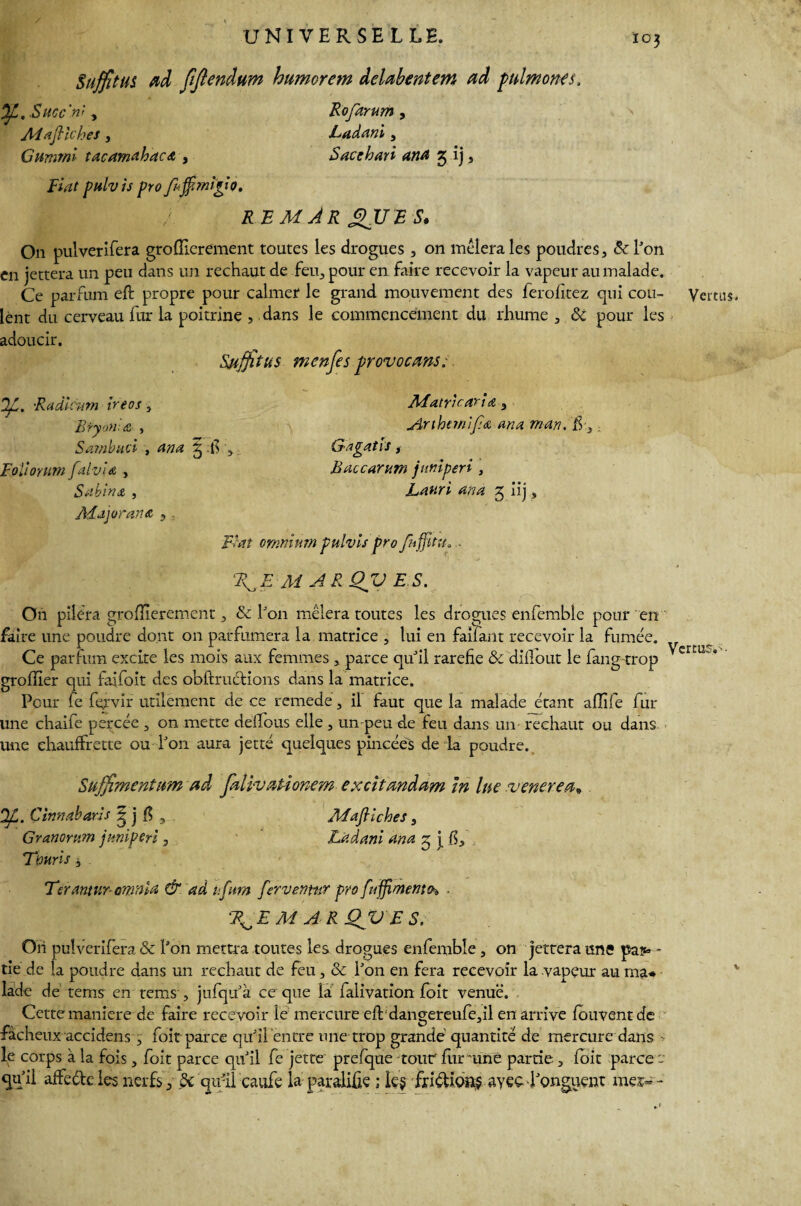 UNIVERSELLE. 103
Suffitus ad ſiſtendum humorem delabentem ad pulmones.
♃. Succini, Roſarum,
Maſtiches, Ladani,
Gummi tacamahacæ, Sacchari ana ʒ ij,
Fiat pulvis pro ſuffimigio.
REMARQUES.
On pulveriſera groſſierement toutes les drogues, on mêlera les poudres, & l'on
en jettera un peu dans un rechaut de feu, pour en faire recevoir la vapeur au malade.
Ce parfum eſt propre pour calmer le grand mouvement des feroſitez qui cou- Vertus.
lent du cerveau ſur la poitrine, dans le commencement du rhume, & pour les
adoucir.
Suffitus menſes provocans.
♃. Radicum ireos, Matricariæ,
Bryoniæ, Arthemiſiæ ana man. ß,
Sambuci, ana ℥ ß, Gagatis,
Foliorum ſalviæ, Baccarum juniperi,
Sabinæ, Lauri ana ʒ iij,
Majoranæ,
Fiat omnium pulvis pro ſuffitu.
REMARQVES.
On pilera groſſierement, & l'on mêlera toutes les drogues enſemble pour en
faire une poudre dont on parfumera la matrice, lui en faiſant recevoir la fumée.
Ce parfum excite les mois aux femmes, parce qu'il rarefie & diſſout le ſang trop Vertus.
groſſier qui faiſoit des obſtructions dans la matrice.
Pour ſe ſervir utilement de ce remede, il faut que la malade étant aſſiſe ſur
une chaiſe percée, on mette deſſous elle, un peu de feu dans un rechaut ou dans
une chauffrette ou l'on aura jetté quelques pincées de la poudre.
Suffimentum ad ſalivationem excitandam in lue venerea.
♃. Cinnabaris ℥ j ß, Maſtiches,
Granorum juniperi, Ladani ana ʒ j ß,
Thuris,
Terantur omnia & ad uſum ſerventur pro ſuffimento.
REMARQVES.
On pulveriſera & l'on mettra toutes les drogues enſemble, on jettera une par-
tie de la poudre dans un rechaut de feu, & l'on en fera recevoir la vapeur au ma-
lade de tems en tems, juſqu'à ce que la ſalivation ſoit venuë.
Cette maniere de faire recevoir le mercure eſt dangereuſe, il en arrive ſouvent de
fâcheux accidens, ſoit parce qu'il entre une trop grande quantité de mercure dans
le corps à la fois, ſoit parce qu'il ſe jette preſque tout ſur une partie, ſoit parce
qu'il affecte les nerfs, & qu'il cauſe la paraliſie; les frictions avec l'onguent mer-